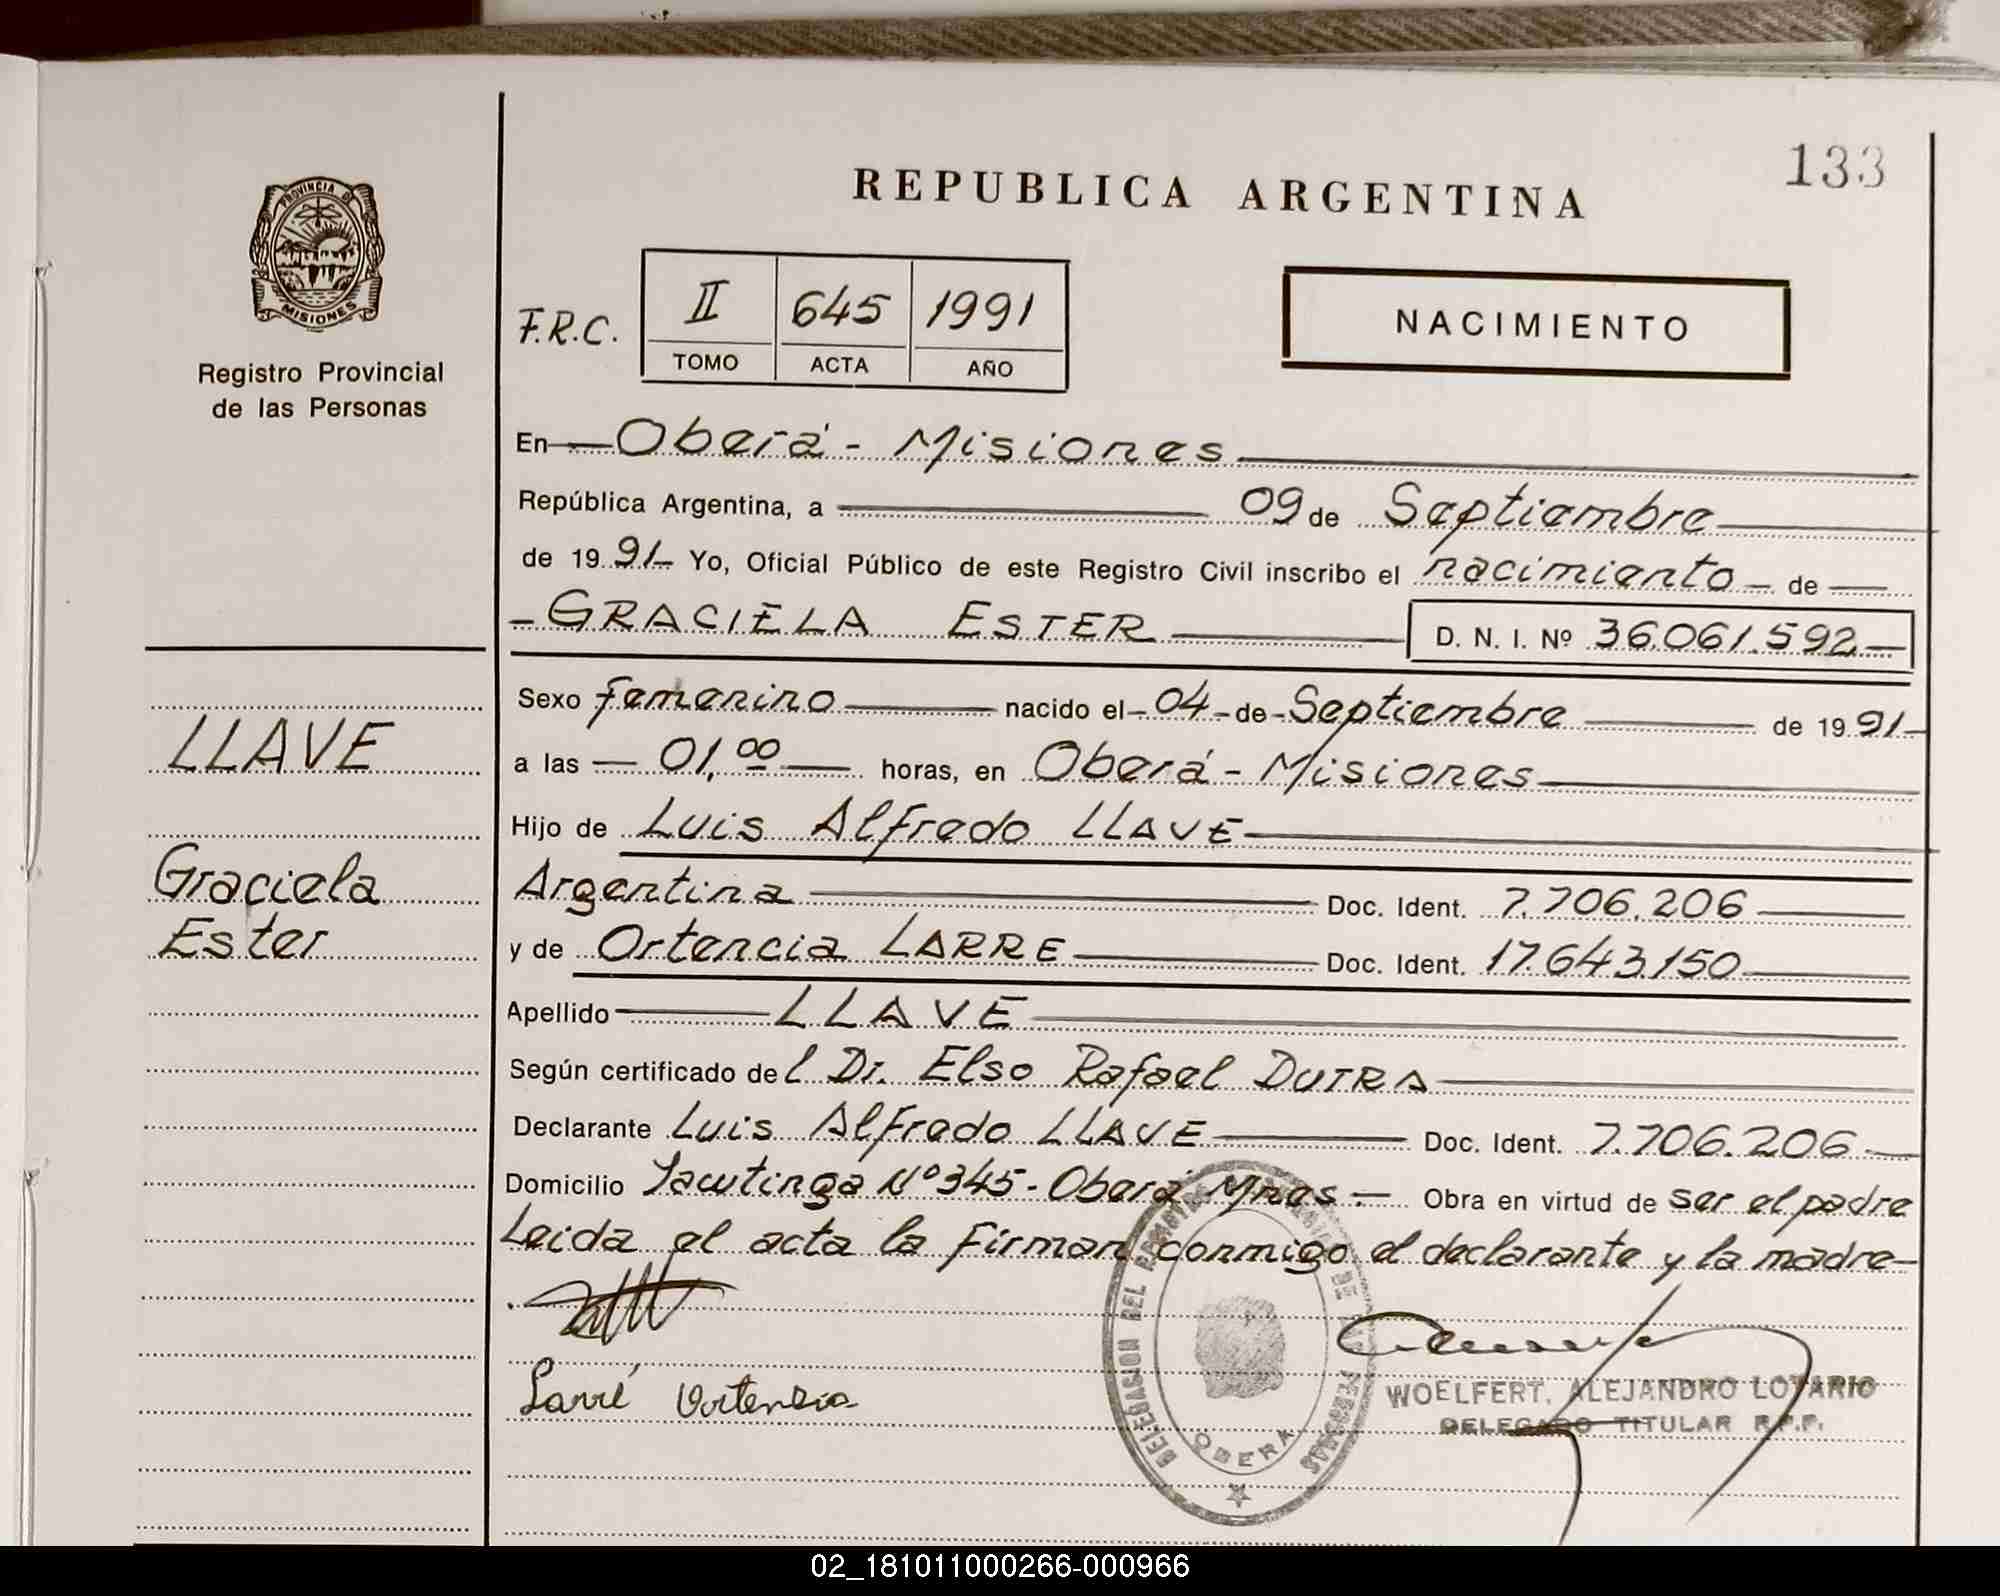 133
REPUBLICA ARGENTINA
PROVINCIA DE
MISIONES
Registro Provincial
de las Personas
F.R.C.
II 645 1991
TOMO ACTA AÑO
NACIMIENTO
En Oberá - Misiones
República Argentina, a 09 de Septiembre
de 1991 Yo, Oficial Público de este Registro Civil inscribo el nacimiento de
GRACIELA ESTER D. N. I. Nº 36.061.592
LLAVE
Graciela
Ester
Sexo femenino nacido el 04 de Septiembre de 1991
a las 01,00 horas, en Oberá - Misiones
Hijo de Luis Alfredo LLAVE
Argentina Doc. Ident. 7.706.206
y de Ortencia LARRE Doc. Ident. 17.643.150
Apellido LLAVE
Según certificado del Dr. Elso Rafael DUTRA
Declarante Luis Alfredo LLAVE Doc. Ident. 7.706.206
Domicilio Yacutinga Nº 345 - Oberá Mnes. Obra en virtud de ser el padre
Leida el acta la firman conmigo el declarante y la madre
Larré Ortensia
DELEGACION DEL REGISTRO DE LAS PERSONAS
OBERA
WOELFERT, ALEJANDRO LOTARIO
DELEGADO TITULAR R.P.P.
02_181011000266-000966